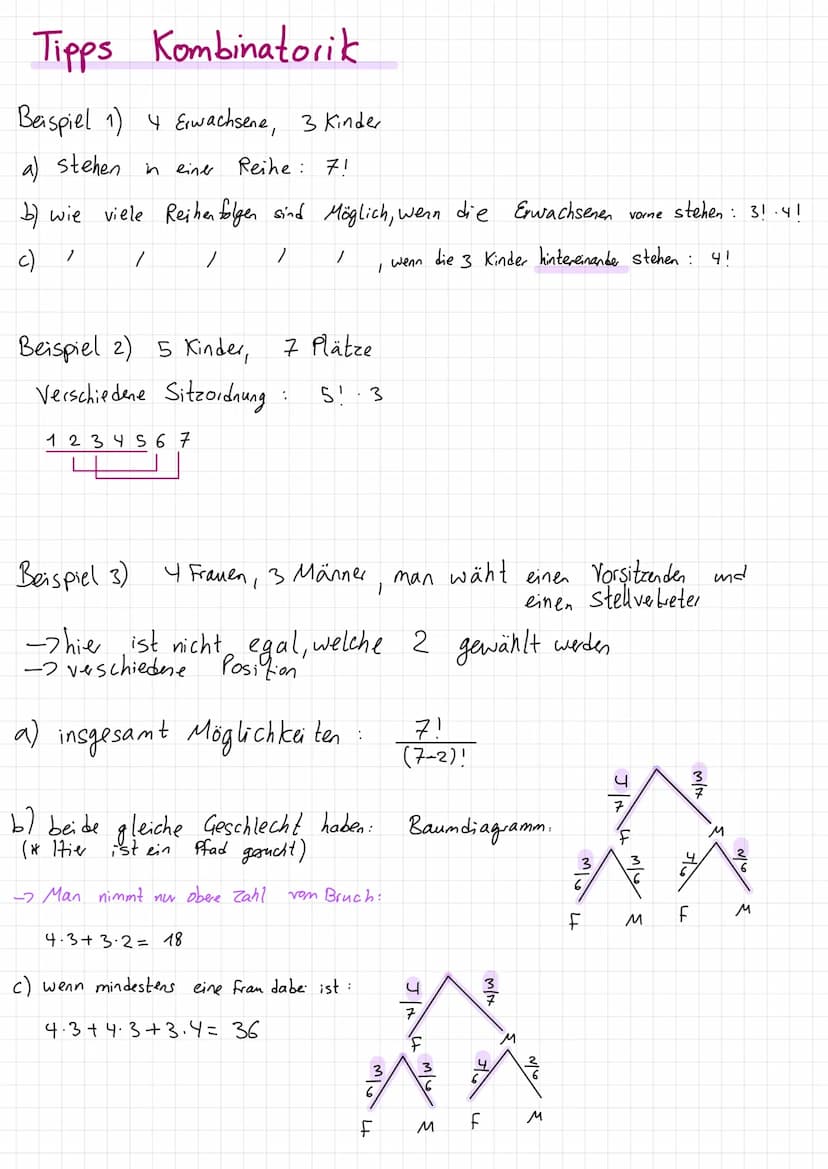 Tipps Kombinatorik
Beispiel 1) 4 Erwachsene, 3 Kinder
a) stehen in einer Reihe: 7!
b) wie viele Reihenfolgen sind Möglich, wenn die Erwachsenen vorne stehen: 3! · 4!
c) / / / / / , wenn die 3 Kinder hintereinande stehen: 4!
Beispiel 2) 5 Kinder, 7 Plätze
Verschiedene Sitzordnung: 5! · 3
1 2 3 4 5 6 7
Beispiel 3) 4 Frauen, 3 Männer, man wäht einen Vorsitzenden und
einen Stellvertreter
->hier ist nicht egal, welche 2 gewählt werden
-> verschiedene Position
a) insgesamt Möglichkeiten: 7!/(7-2)!
4/7 3/7
b) beide gleiche Geschlecht haben: Baumdiagramm.
F M
(* Hier ist ein Pfad gesucht)
3/6 3/6 4/6 2/6
-> Man nimmt nur obere Zahl vom Bruch:
F M F M
4·3+3·2= 18
c) wenn mindestens eine Frau dabei ist:
4/7 3/7
4·3+4·3+3·4= 36
F M
3/6 3/6 4/6 2/6
F M F M